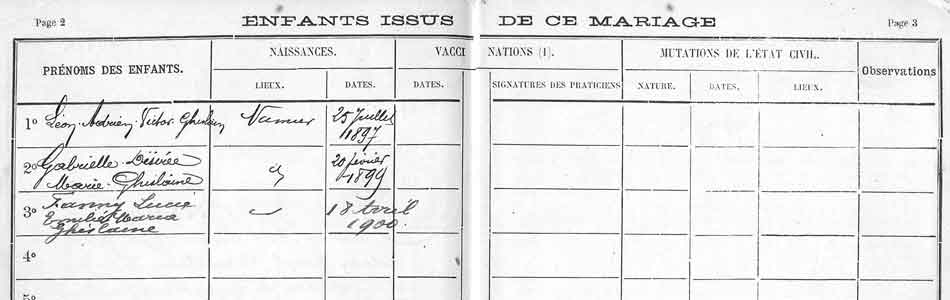 Page 2
ENFANTS ISSUS DE CE MARIAGE
Page 3
PRÉNOMS DES ENFANTS.
NAISSANCES.
VACCINATIONS (1).
MUTATIONS DE L'ÉTAT CIVIL.
Observations
LIEUX.
DATES.
DATES.
SIGNATURES DES PRATICIENS
NATURE.
DATES.
LIEUX.
1º Léon Adrien Victor Ghislain Namur 25 Juillet
1897
2º Gabrielle Désirée 20 février
Marie Ghislaine 1899
3º Fanny Lucie 18 Avril
Emilie Maria 1900
Ghislaine
4º
5º